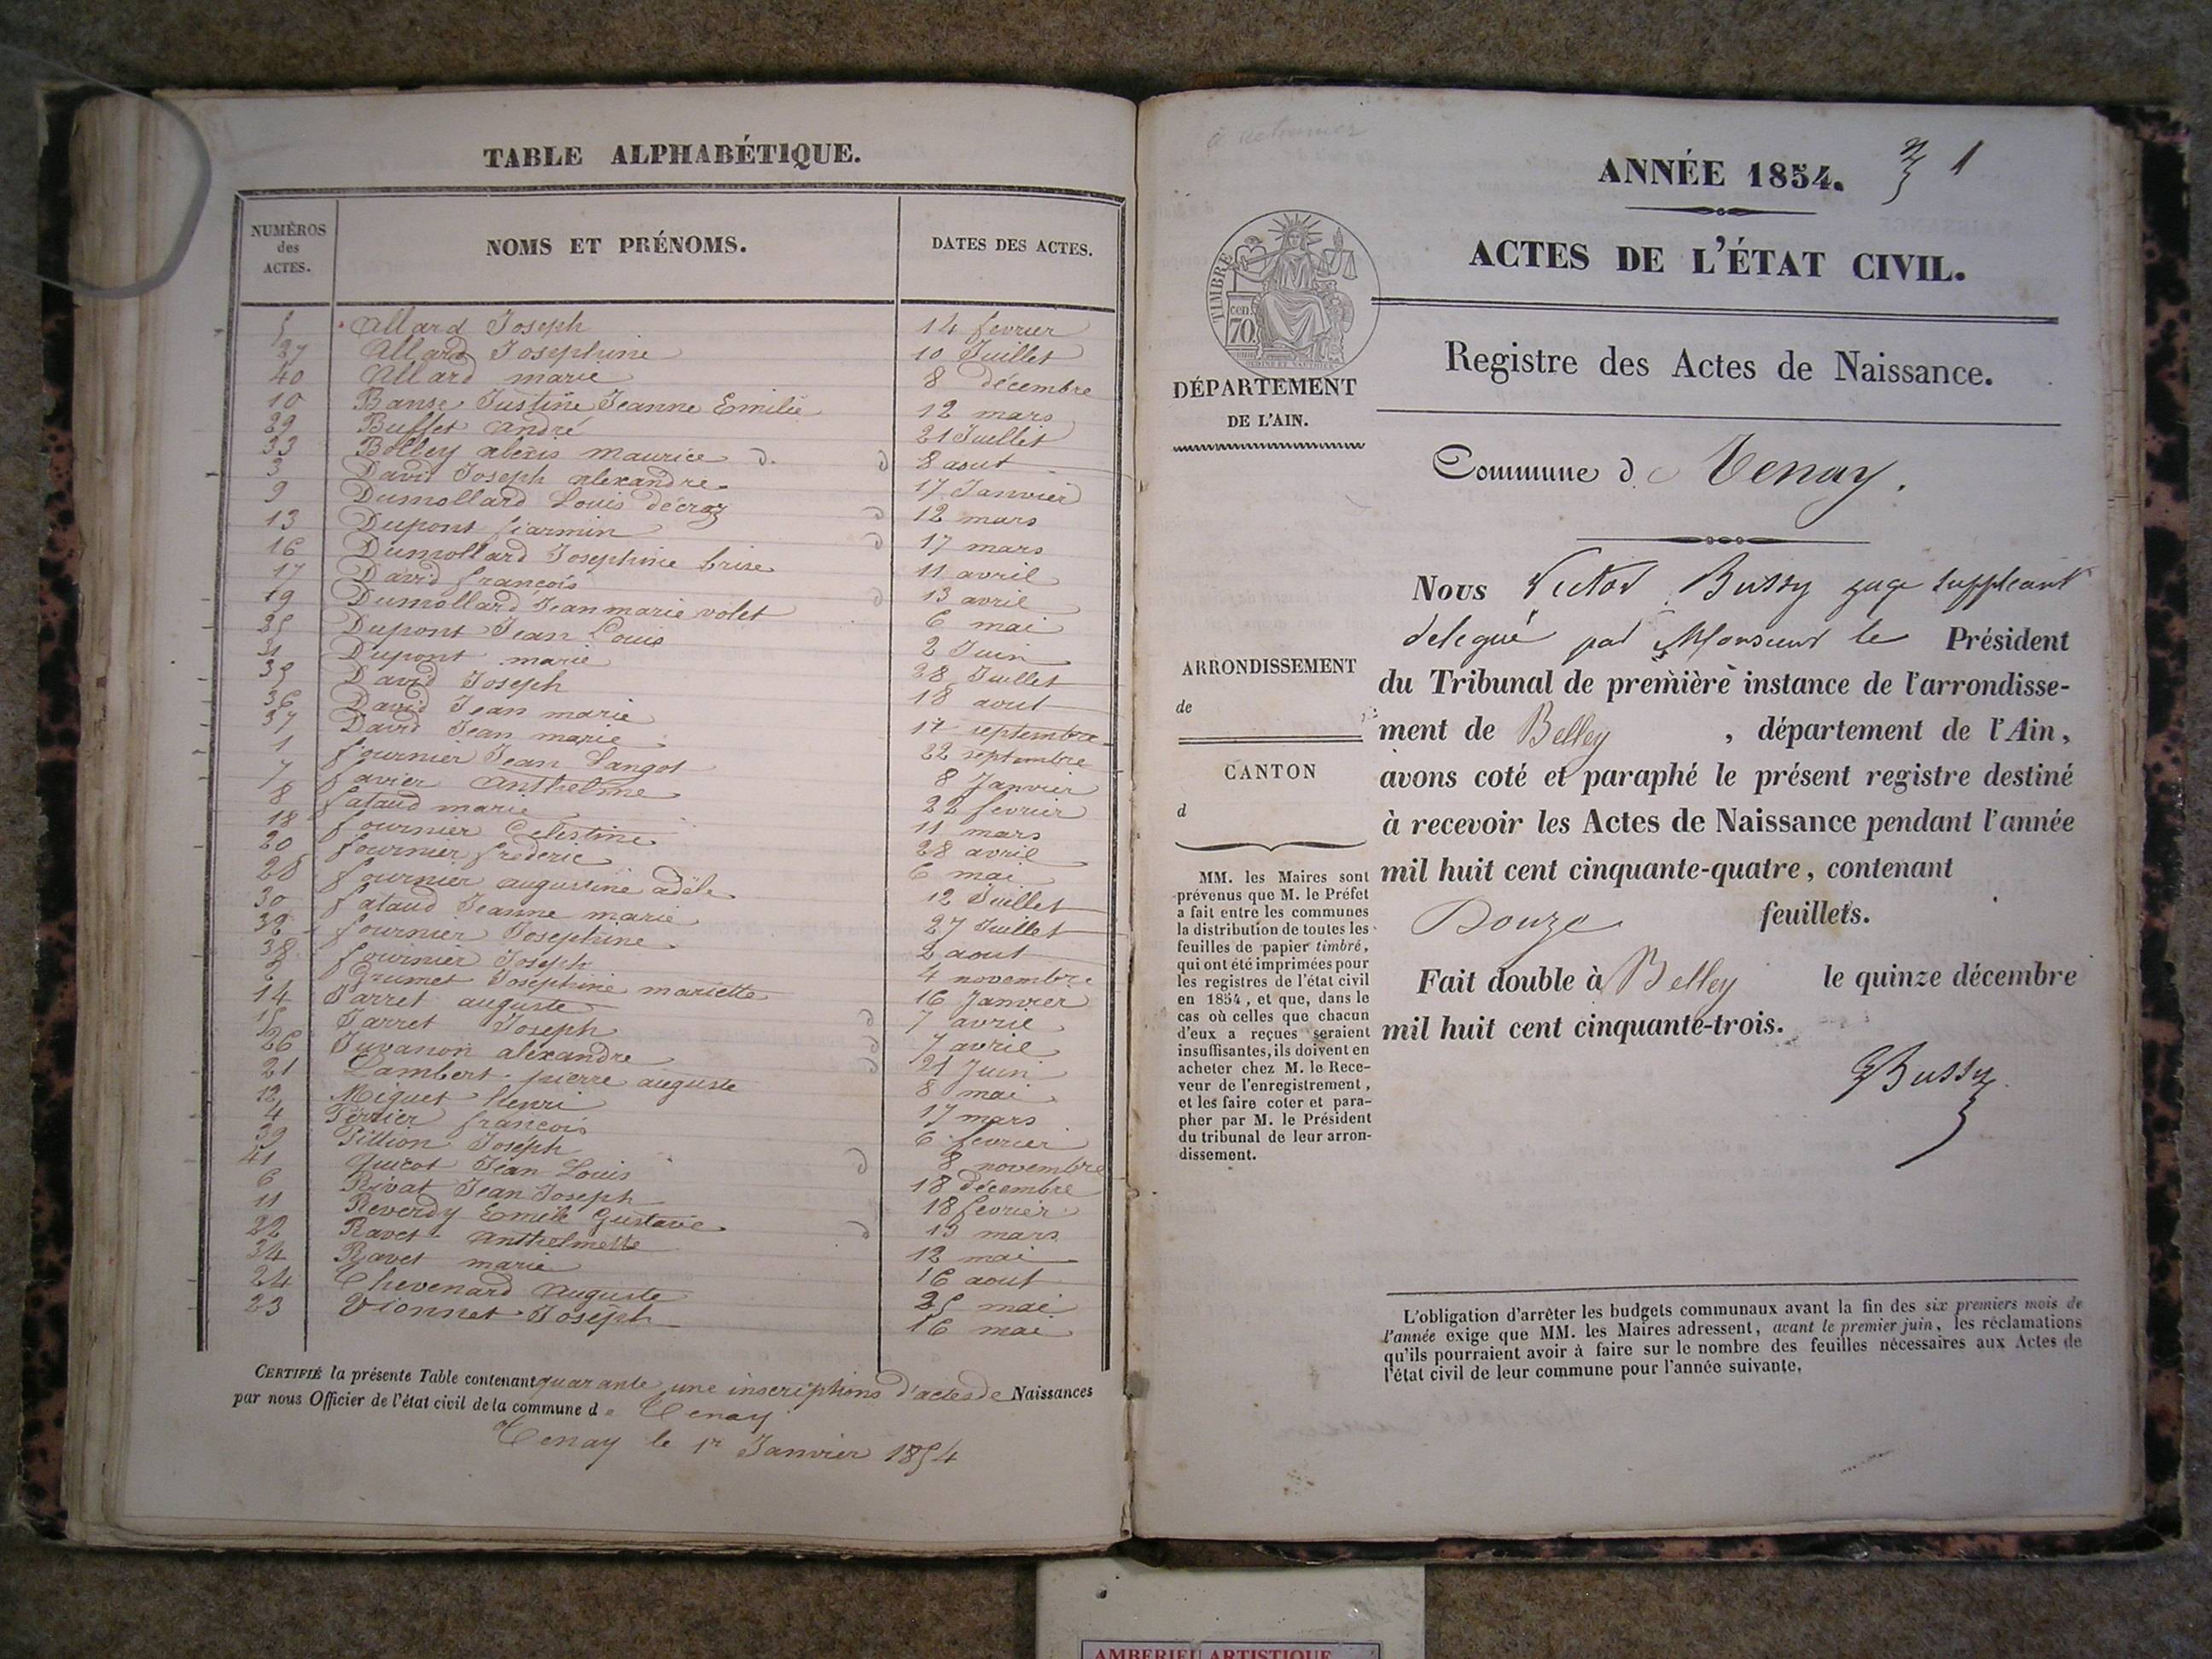 TABLE ALPHABÉTIQUE.
NUMÉROS des ACTES.
NOMS ET PRÉNOMS.
DATES DES ACTES.
5 Allard Joseph 14 fevrier
27 Allard Josephine 10 Juillet
40 Allard marie 8 décembre
10 Banse Justine Jeanne Emilie 12 mars
29 Buffet André 21 Juillet
33 Bolley alexis maurice d. 8 aout
3 David Joseph alexandre 17 Janvier
9 Dumollard Louis décroz 12 mars
13 Dupont firmin 17 mars
16 Dumollard Josephine brise 11 avril
17 David françois 13 avril
19 Dumollard Jean marie volet 6 mai
25 Dupont Jean Louis 2 Juin
31 Dupont marie 28 Juillet
35 David Joseph 18 aout
36 David Jean marie 17 septembre
37 David Jean marie 22 septembre
1 fournier Jean Langot 8 Janvier
7 favier Anthelme 22 fevrier
8 fataud marie 11 mars
18 fournier Celestine 28 avril
20 fournier frederic 6 mai
28 fournier augustine adèle 12 Juillet
30 fataud Jeanne marie 27 Juillet
32 fournier Josephine 2 aout
38 fournier Joseph 4 novembre
2 Grumet Josephine mariette 16 Janvier
14 Jarret auguste 7 avril
15 Jarret Joseph 7 avril
26 Juvanon alexandre 21 Juin
21 Lambert pierre auguste 8 mai
12 Miguet henri 17 mars
4 françois 6 fevrier
39 Pittion Joseph 8 novembre
41 Quicot Jean Louis 18 décembre
6 Rivat Jean Joseph 18 fevrier
11 Reverdy Emile Gustave 13 mars
22 Ravet Anthelmette 12 mai
34 Ravet marie 16 aout
24 Chevenard Auguste 25 mai
23 Vionnet Joseph 16 mai
CERTIFIÉ la présente Table contenant quarante une inscriptions d'actes de Naissances
par nous Officier de l'état civil de la commune de Tenay
Tenay le 1r Janvier 1854
1
ANNÉE 1854.
ACTES DE L'ÉTAT CIVIL.
TIMBRE
70 cen.
DÉPARTEMENT
DE L'AIN.
Registre des Actes de Naissance.
Commune de Tenay.
Nous Victor Bussy juge suppleant
delegué par Monsieur le Président
du Tribunal de première instance de l'arrondisse-
ment de Belley, département de l'Ain,
avons coté et paraphé le présent registre destiné
à recevoir les Actes de Naissance pendant l'année
mil huit cent cinquante-quatre, contenant
Douze feuillets.
Fait double à Belley le quinze décembre
mil huit cent cinquante-trois.
Bussy
ARRONDISSEMENT
de
CANTON
d
MM. les Maires sont
prévenus que M. le Préfet
a fait entre les communes
la distribution de toutes les
feuilles de papier timbré,
qui ont été imprimées pour
les registres de l'état civil
en 1854, et que, dans le
cas où celles que chacun
d'eux a reçues seraient
insuffisantes, ils doivent en
acheter chez M. le Rece-
veur de l'enregistrement,
et les faire coter et para-
pher par M. le Président
du tribunal de leur arron-
dissement.
L'obligation d'arrêter les budgets communaux avant la fin des six premiers mois de
l'année exige que MM. les Maires adressent, avant le premier juin, les réclamations
qu'ils pourraient avoir à faire sur le nombre des feuilles nécessaires aux Actes de
l'état civil de leur commune pour l'année suivante.
AMBERIEU ARTISTIQUE